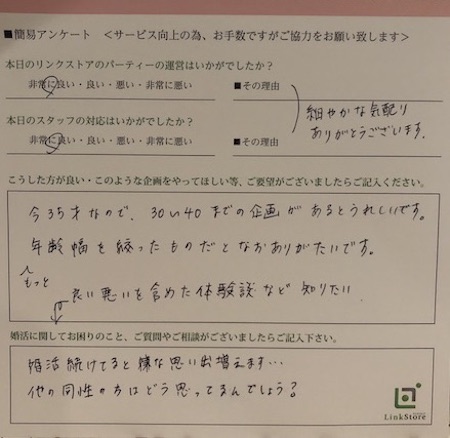 ■簡易アンケート ＜サービス向上の為、お手数ですがご協力をお願い致します＞
本日のリンクストアのパーティーの運営はいかがでしたか？
非常に良い・良い・悪い・非常に悪い ■その理由
細やかな気配り
ありがとうございます。
本日のスタッフの対応はいかがでしたか？
非常に良い・良い・悪い・非常に悪い ■その理由
こうした方が良い・このような企画をやってほしい等、ご要望がございましたらご記入ください。
今35才なので、30い40までの企画があるとうれしいです。
年齢幅を絞ったものだとなおありがたいです。
もっと
良い悪いを含めた体験談など知りたい
婚活に関してお困りのこと、ご質問やご相談がございましたらご記入下さい。
婚活続けてると嫌な思い出増えます…
他の同性の方はどう思ってるんでしょう？
LinkStore